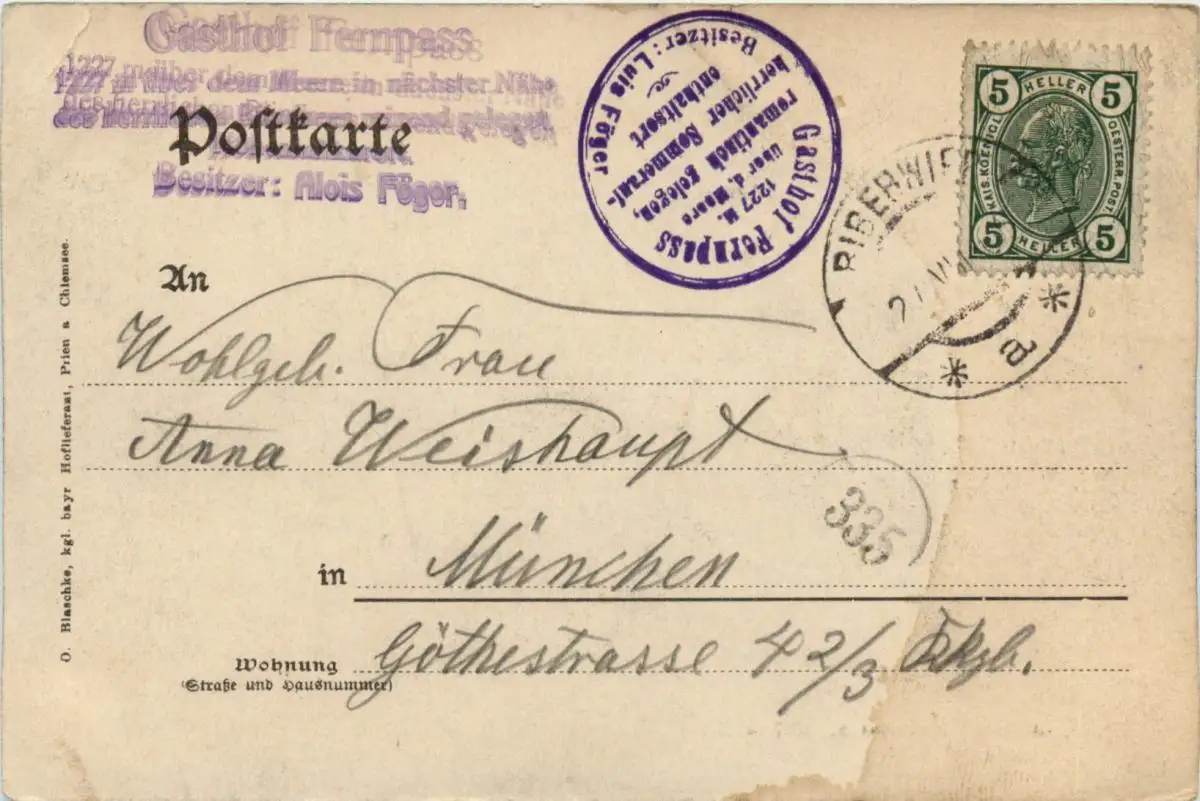 Gasthof Fernpass
1227 m über dem Meere in nächster Nähe
des herrlichen gelegen,
Besitzer: Alois Föger.
Postkarte
Gasthof Fernpass
1227 M.
über d. Meere
romantisch gelegen,
herrlicher Sommerauf-
enthaltsort
Besitzer: Luis Föger
5 HELLER 5
KAIS. KOENIGL. OESTERR. POST.
5 HELLER 5
BIBERWIER
a
An
Wohlgeb. Frau
Anna Weishaupt
335
in München
Wohnung Göthestrasse 42/3
(Straße und Hausnummer)
O. Blaschke, kgl. bayr Hoflieferant, Prien a Chiemsee.